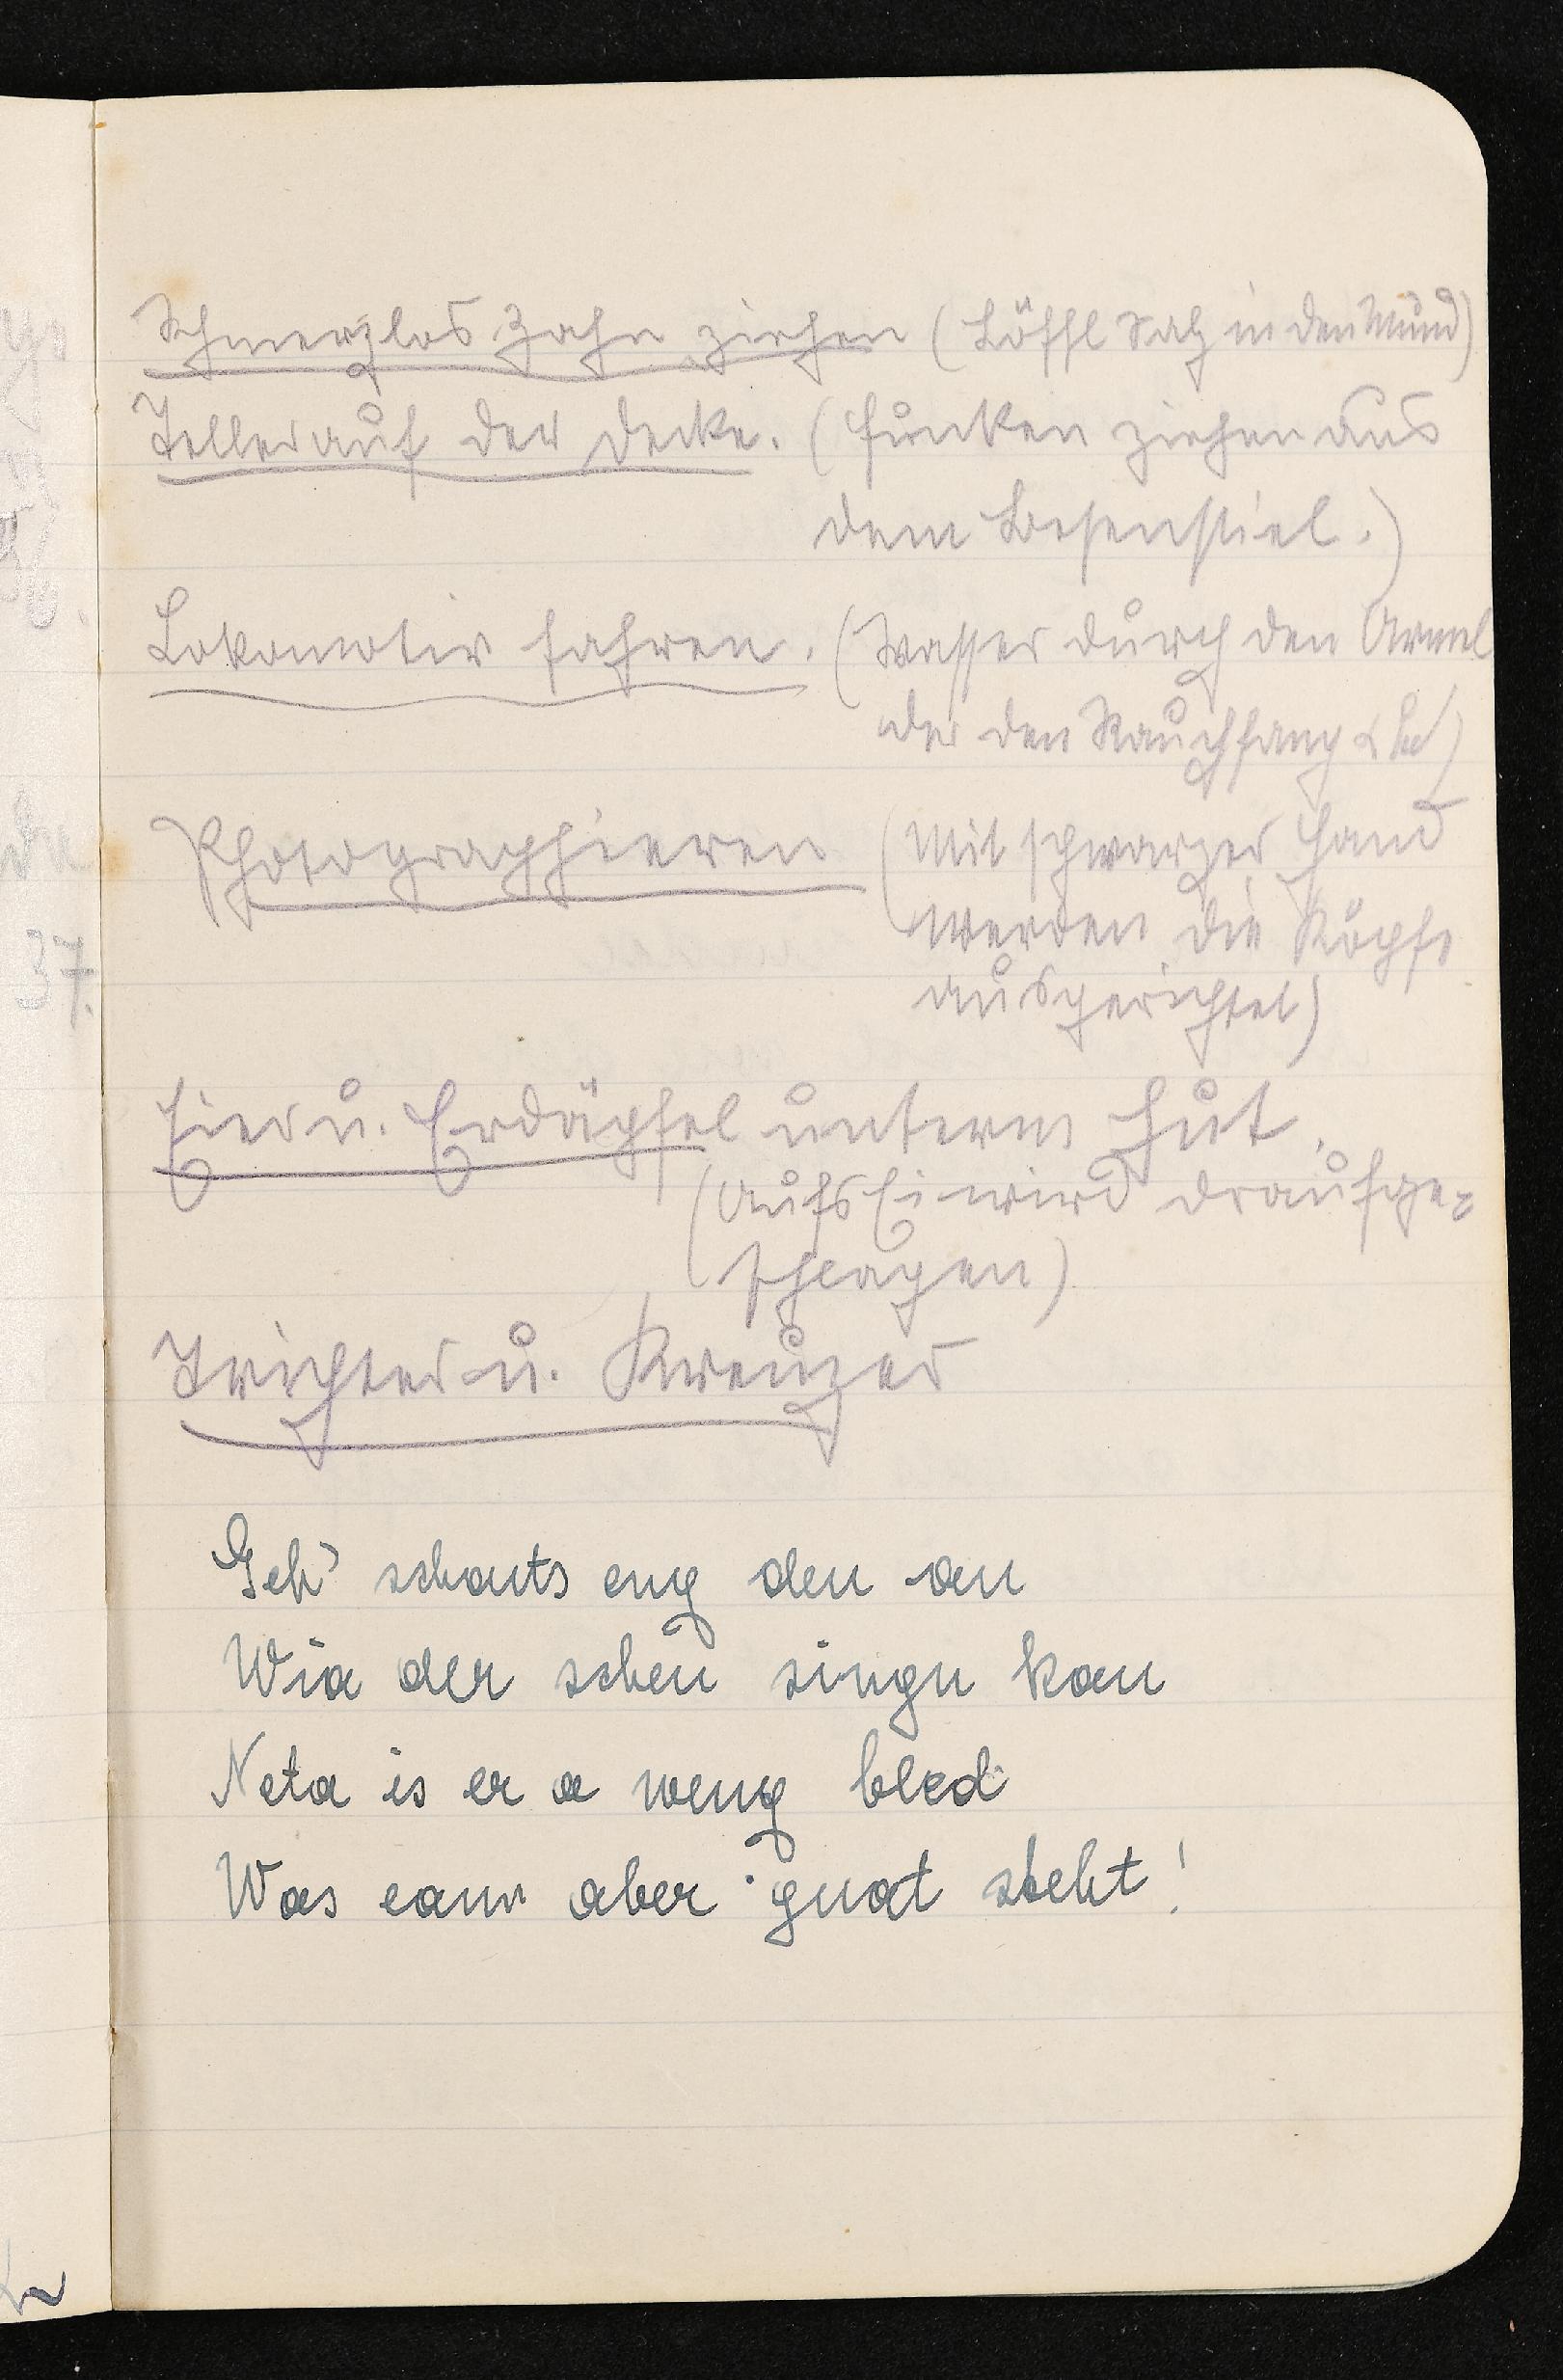 Schmerzlos Zahn ziehen (Löffl Salz in den Mund)
Teller auf der Decke. (Funken ziehen aus
dem Besenstiel.)
Lokomotiv fahren. (Wasser durch den Ärmel
der den Rauchfang
Photographieren (Mit schwarzer Hand
werden die Köpfe
ausgerichtet)
Eier u. Erdäpfel unterm Hut.
(Aufs Ei wird draufge=
schlagen)
Trichter u. Kreuzer
Geh' schauts eng den an
Wia der schen singn kan
Neta is er a weng bled
Was eam aber guat steht!
37.